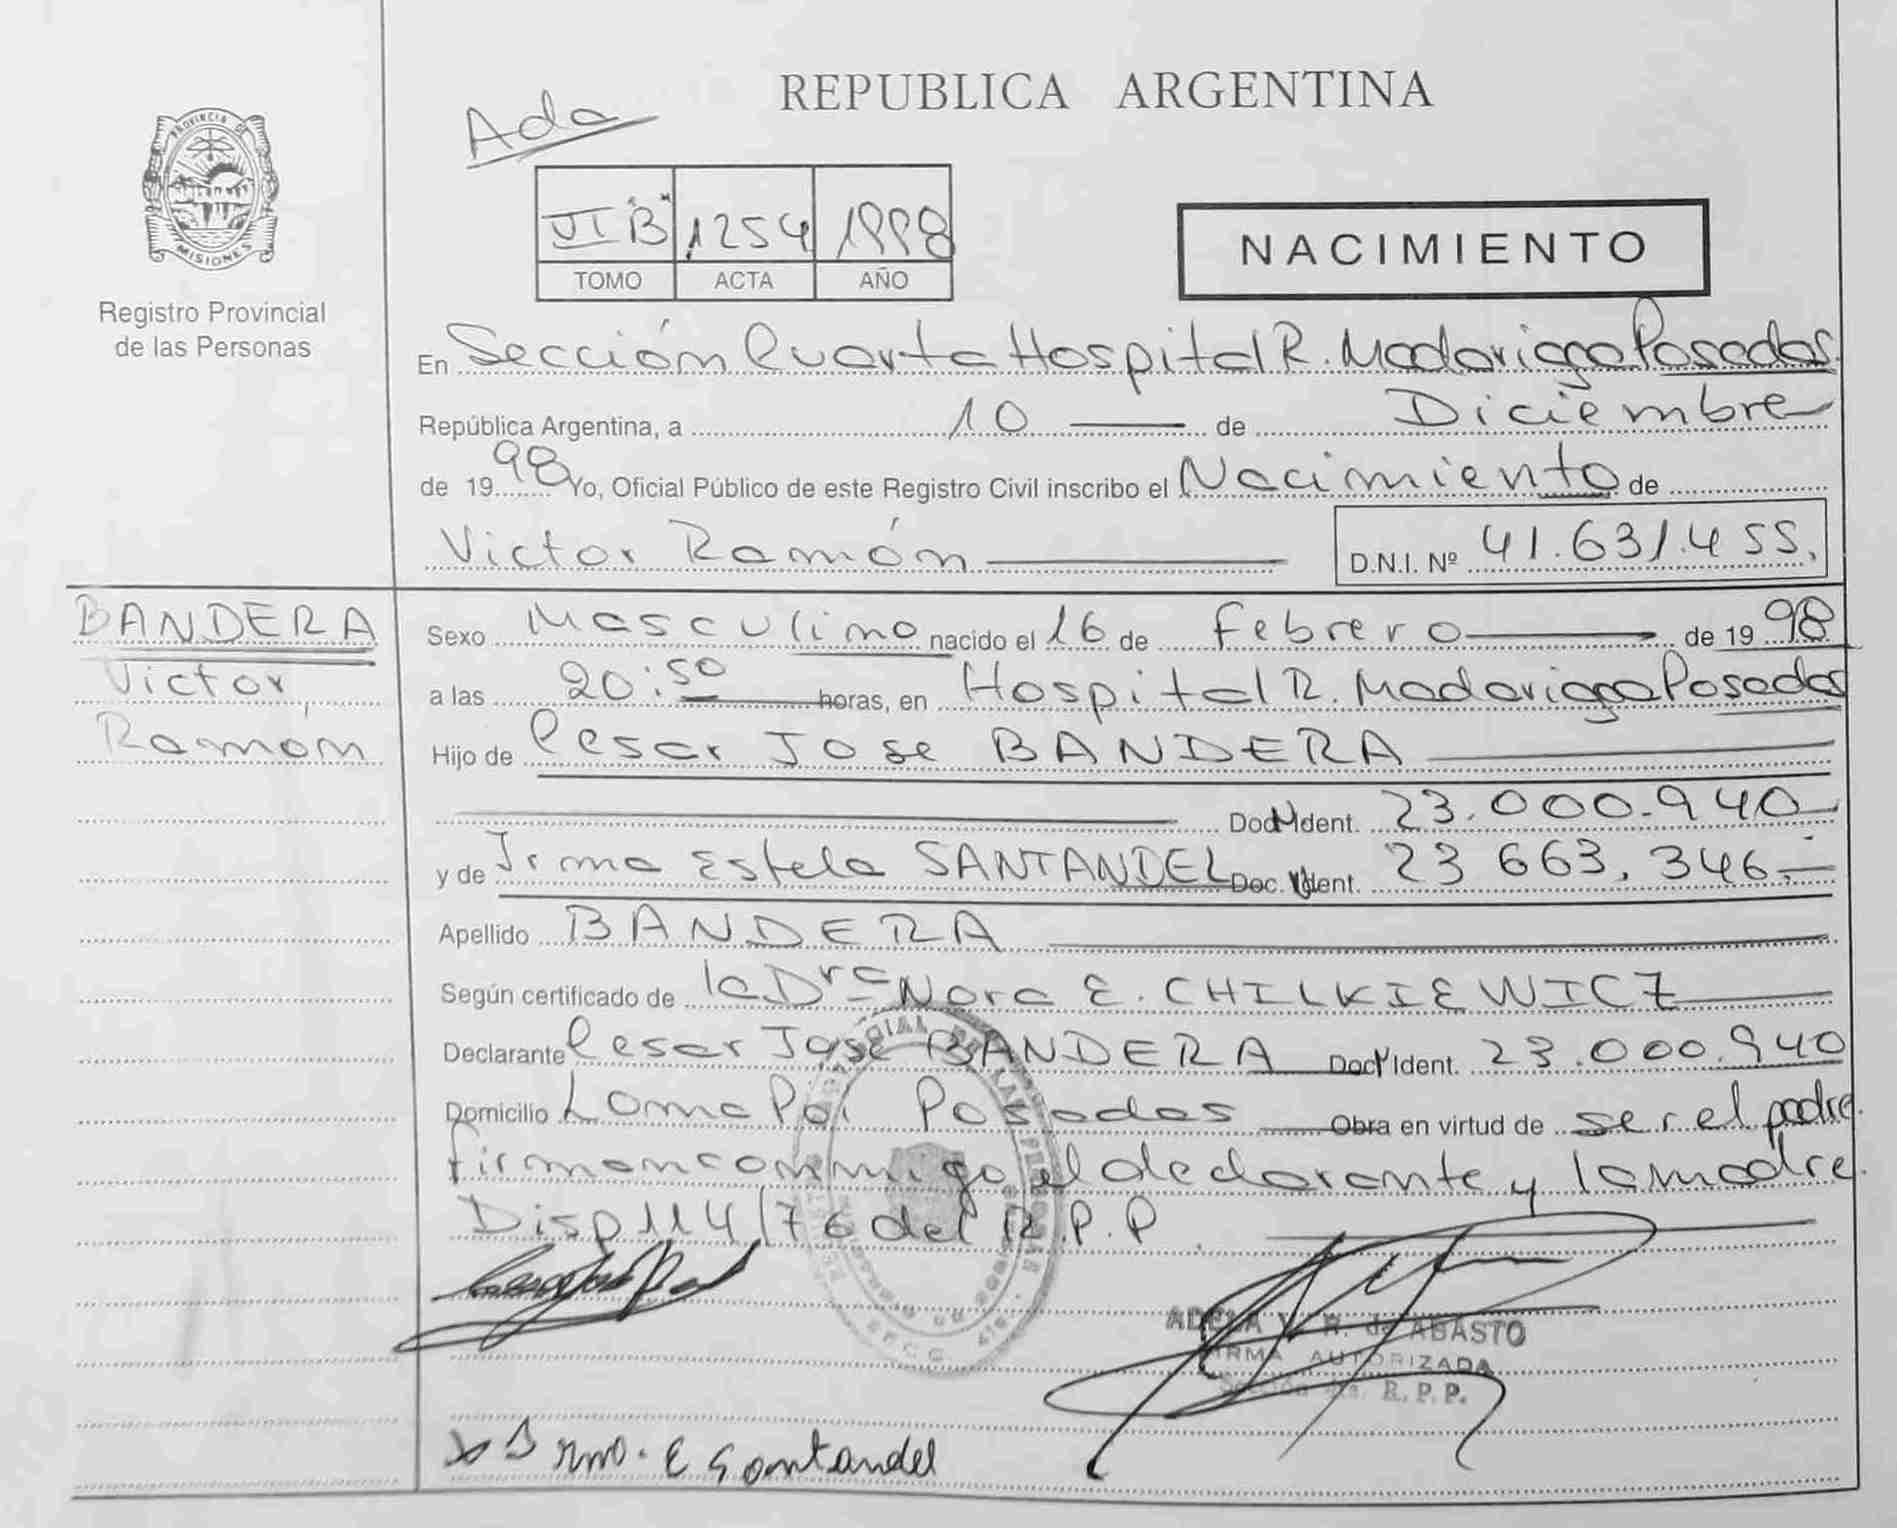 PROVINCIA DE
MISIONES
Registro Provincial
de las Personas
REPUBLICA ARGENTINA
Ada
VI "B" 1254 1998
TOMO ACTA AÑO
NACIMIENTO
En Sección Cuarta Hospital R. Madariaga Posadas.
República Argentina, a 10 de Diciembre
de 1998 Yo, Oficial Público de este Registro Civil inscribo el Nacimiento de
Victor Ramón D.N.I. Nº 41.631.455.
BANDERA
Victor
Ramón
Sexo Masculino nacido el 16 de Febrero de 1998
a las 20:50 horas, en Hospital R. Madariaga Posadas
Hijo de Cesar Jose BANDERA
Doc. Ident. 23.000.940
y de Irma Estela SANTANDEL Doc. Ident. 23 663.346.-
Apellido BANDERA
Según certificado de la Dra Nora E. CHILKIEWICZ
Declarante Cesar Jose BANDERA Doc. Ident. 23.000.940
Domicilio Loma Poi Posadas Obra en virtud de ser el padre.
firman conmigo el declarante y la madre.
Disp 114/76 del R.P.P
ADELA V. R. de ABASTO
FIRMA AUTORIZADA
Sección 4ta. R.P.P.
Irma. E Santandel